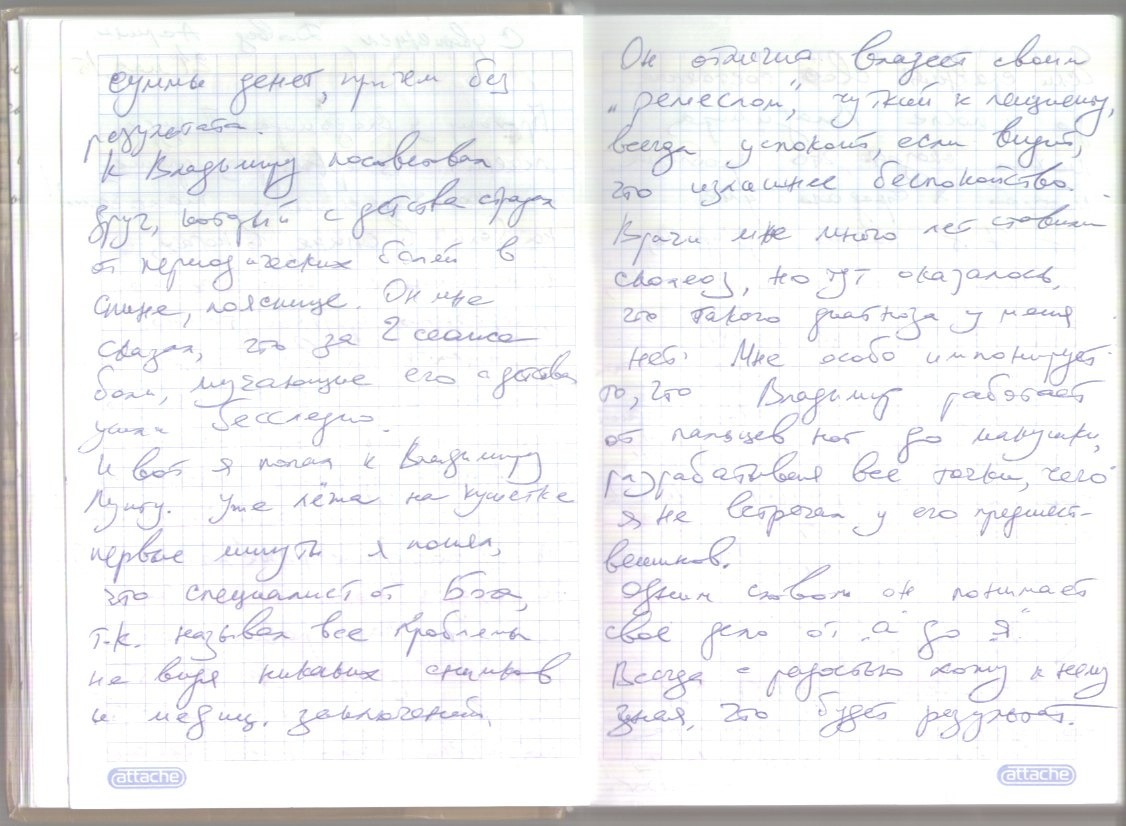 суммы денег, причем без
результата.
К Владимиру посоветовал
друг, который с детства страдал
от периодических болей в
спине, пояснице. Он мне
сказал, что за 2 сеанса
боли, мучающие его с детства
ушли бесследно.
И вот я попал к Владимиру
Лунгу. Уже лёжа на кушетке
первые минуты я понял,
что специалист от Бога,
т.к. называл все проблемы
не видя никаких снимков
и медиц. заключений.
attache
Он отлично владеет своим
"ремеслом", чуткий к пациенту,
всегда успокоит, если видит,
что излишнее беспокойство.
Врачи мне много лет ставили
сколеоз, но тут оказалось,
что такого диагноза у меня
нет. Мне особо импонирует
то, что Владимир работает
от пальцев ног до макушки,
разрабатывая все точки, чего
я не встречал у его предшест-
венников.
Одним словом он понимает
своё дело от "а" до "я".
Всегда с радостью хожу к нему
зная, что будет результат.
attache